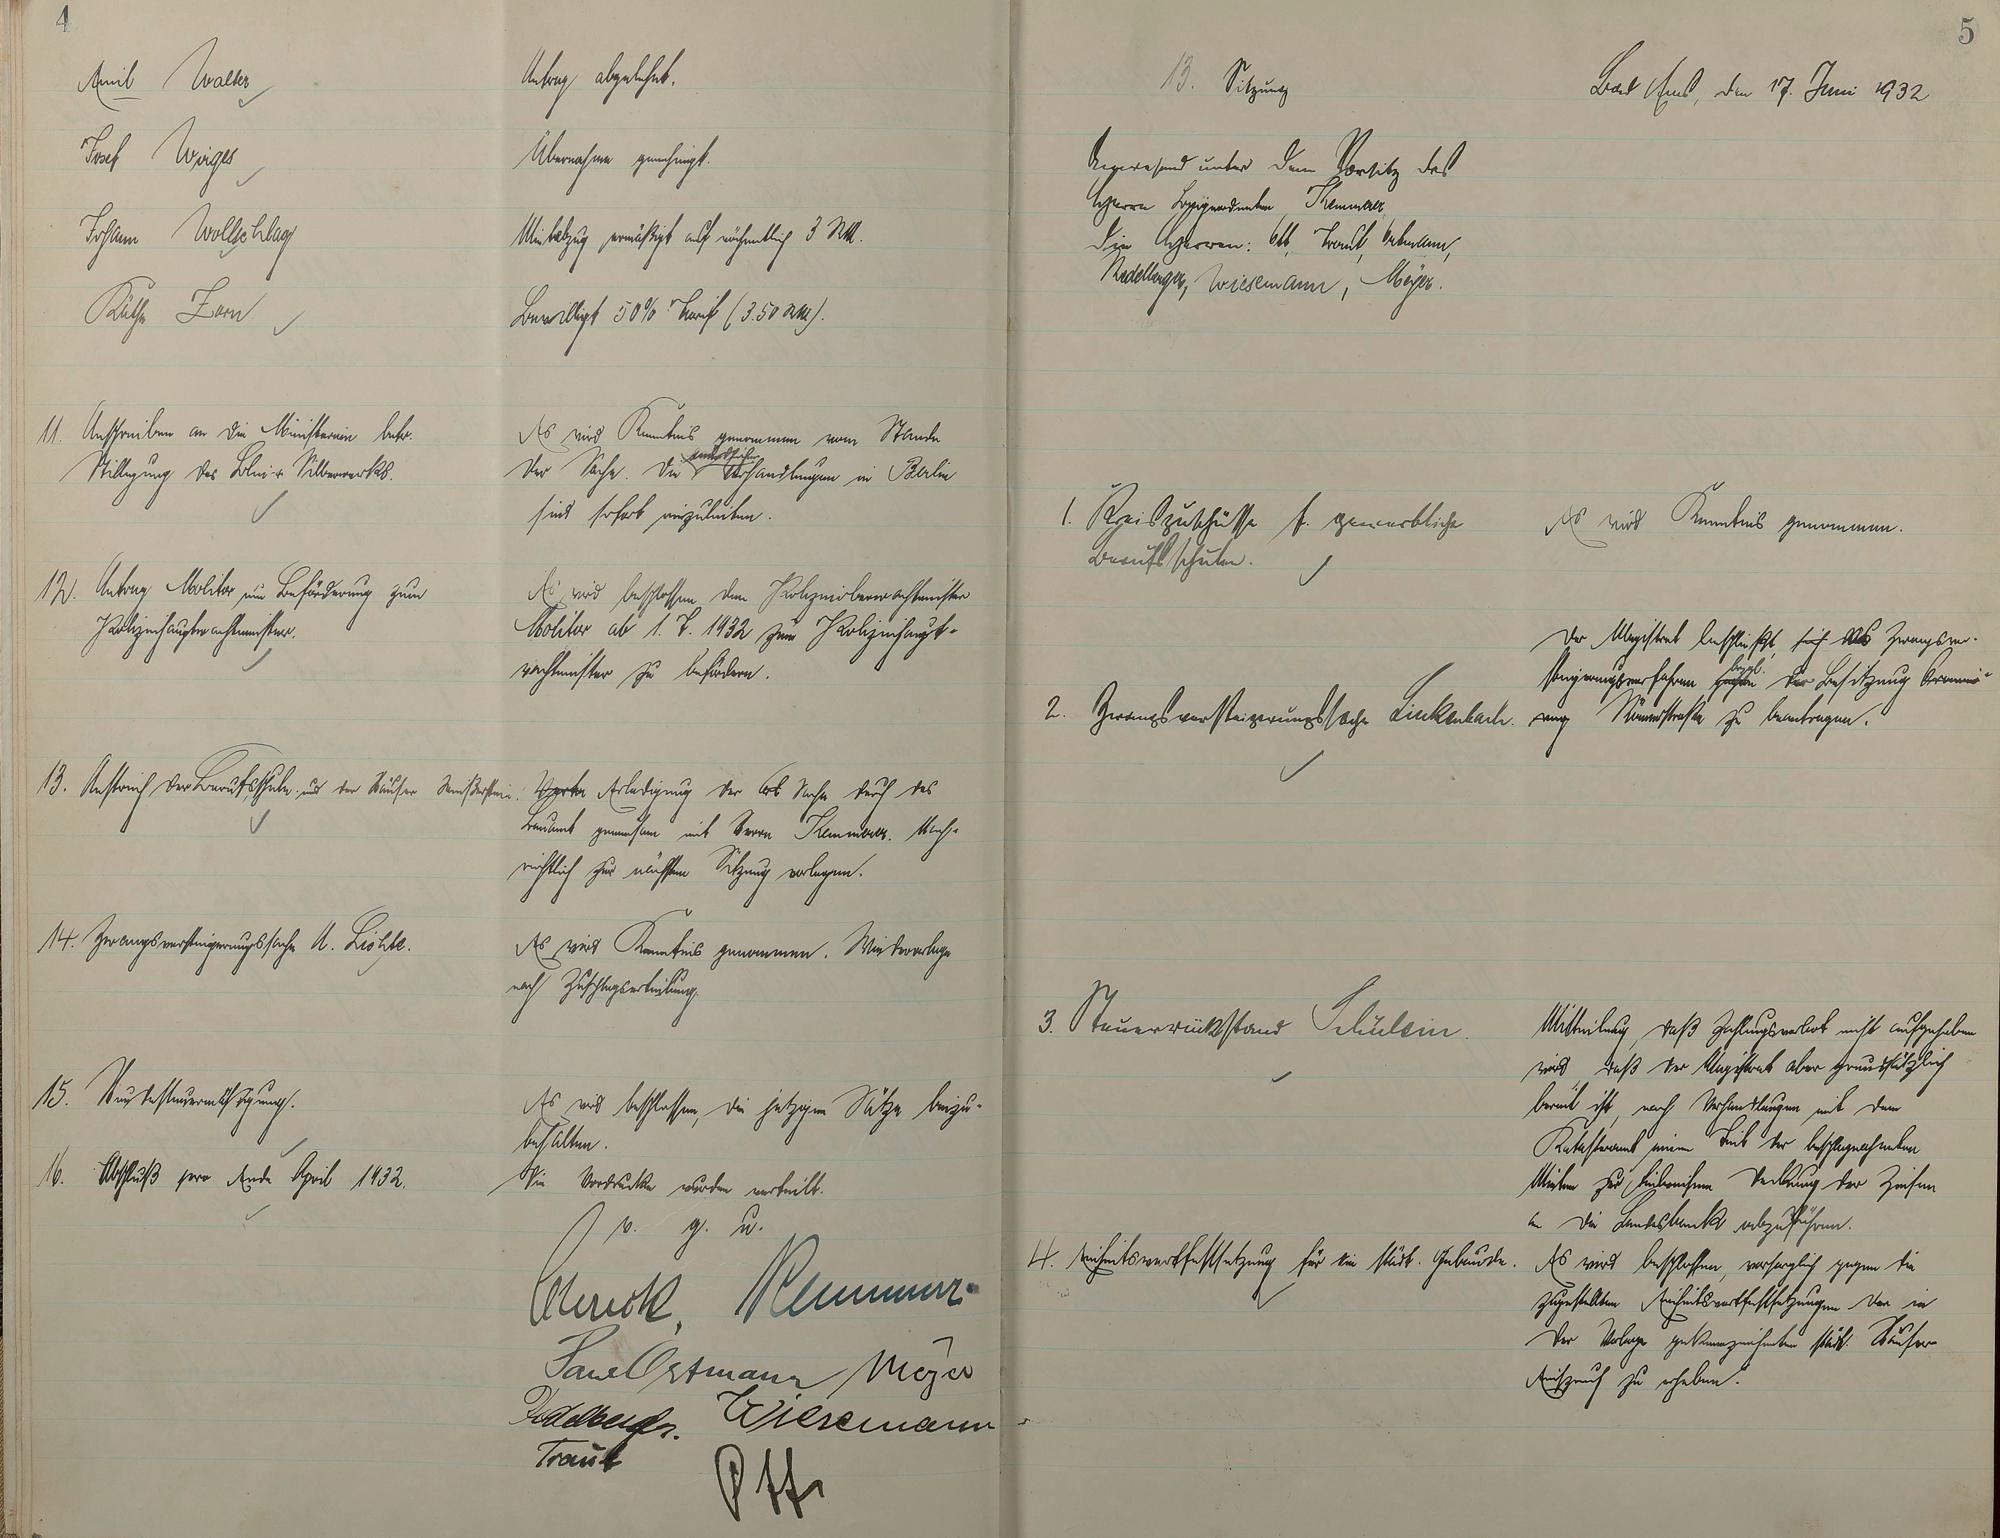 4
Emil Walter
Antrag abgelehnt.
Josef Wirges
Übernahme genehmigt.
Johann Wollschlag
Mietabzug ermäßigt auf wöchentlich 3 RM.
Käthe Zorn
Bewilligt 50% Tarif (3.50 RM).
11. Anschreiben an die Ministerien betr.
Stillegung des Blei- u. Silberwerks.
Es wird Kenntnis genommen vom Stande
der Sache. Die Verhandlungen in Berlin
sind sofort einzuleiten.
12. Antrag Molitor um Beförderung zum
Polizeihauptwachtmeister.
Es wird beschlossen den Polizeioberwachtmeister
Molitor ab 1. 7. 1932 zum Polizeihaupt-
wachtmeister zu befördern.
13. Anstrich der Berufsschule und der Häuser
Erledigung der Sache durch das
Bauamt gemeinsam mit Herrn Kemmerer. Nach-
richtlich zur nächsten Sitzung vorlegen.
14. Zwangsversteigerungssache A. Lichte.
Es wird Kenntnis genommen. Wiedervorlage
nach Zuschlagserteilung.
15. Hundesteuerermäßigung.
Es wird beschlossen, die jetzigen Sätze beizu-
behalten.
16. Abschluß pro Ende April 1932.
Die Vordrucke wurden verteilt.
v. g. u.
Ortmann Meyer
Wiesemann
Traut
Ott
5
13. Sitzung
Bad Ems, den 17. Juni 1932
Anwesend unter dem Vorsitz des
Herrn Beigeordneten Kemmerer
die Herren: Ott, Traut, Ortmann,
Wiesemann, Meyer.
1. Kreiszuschüsse f. gewerbliche
Berufsschulen.
Es wird Kenntnis genommen.
2. Zwangsversteigerungssache Linkenbach.
Der Magistrat beschließt, Zwangsver-
steigerungsverfahren bezgl. der Besitzung
Römerstraße zu beantragen.
3. Steuerrückstand Schülein.
Mitteilung, daß Zahlungsverbot nicht aufgehoben
wird daß der Magistrat aber grundsätzlich
bereit ist, nach Verhandlungen mit dem
Katasteramt einen Teil der beschlagnahmten
Mieten zur Deckung der Zinsen
an die Landesbank abzuführen.
4. Einheitswertfestsetzung für die städt. Gebäude.
Es wird beschlossen, vorsorglich gegen die
zugestellten Einheitswertfestsetzungen der in
der Vorlage gekennzeichneten städt. Häuser
Einspruch zu erheben.